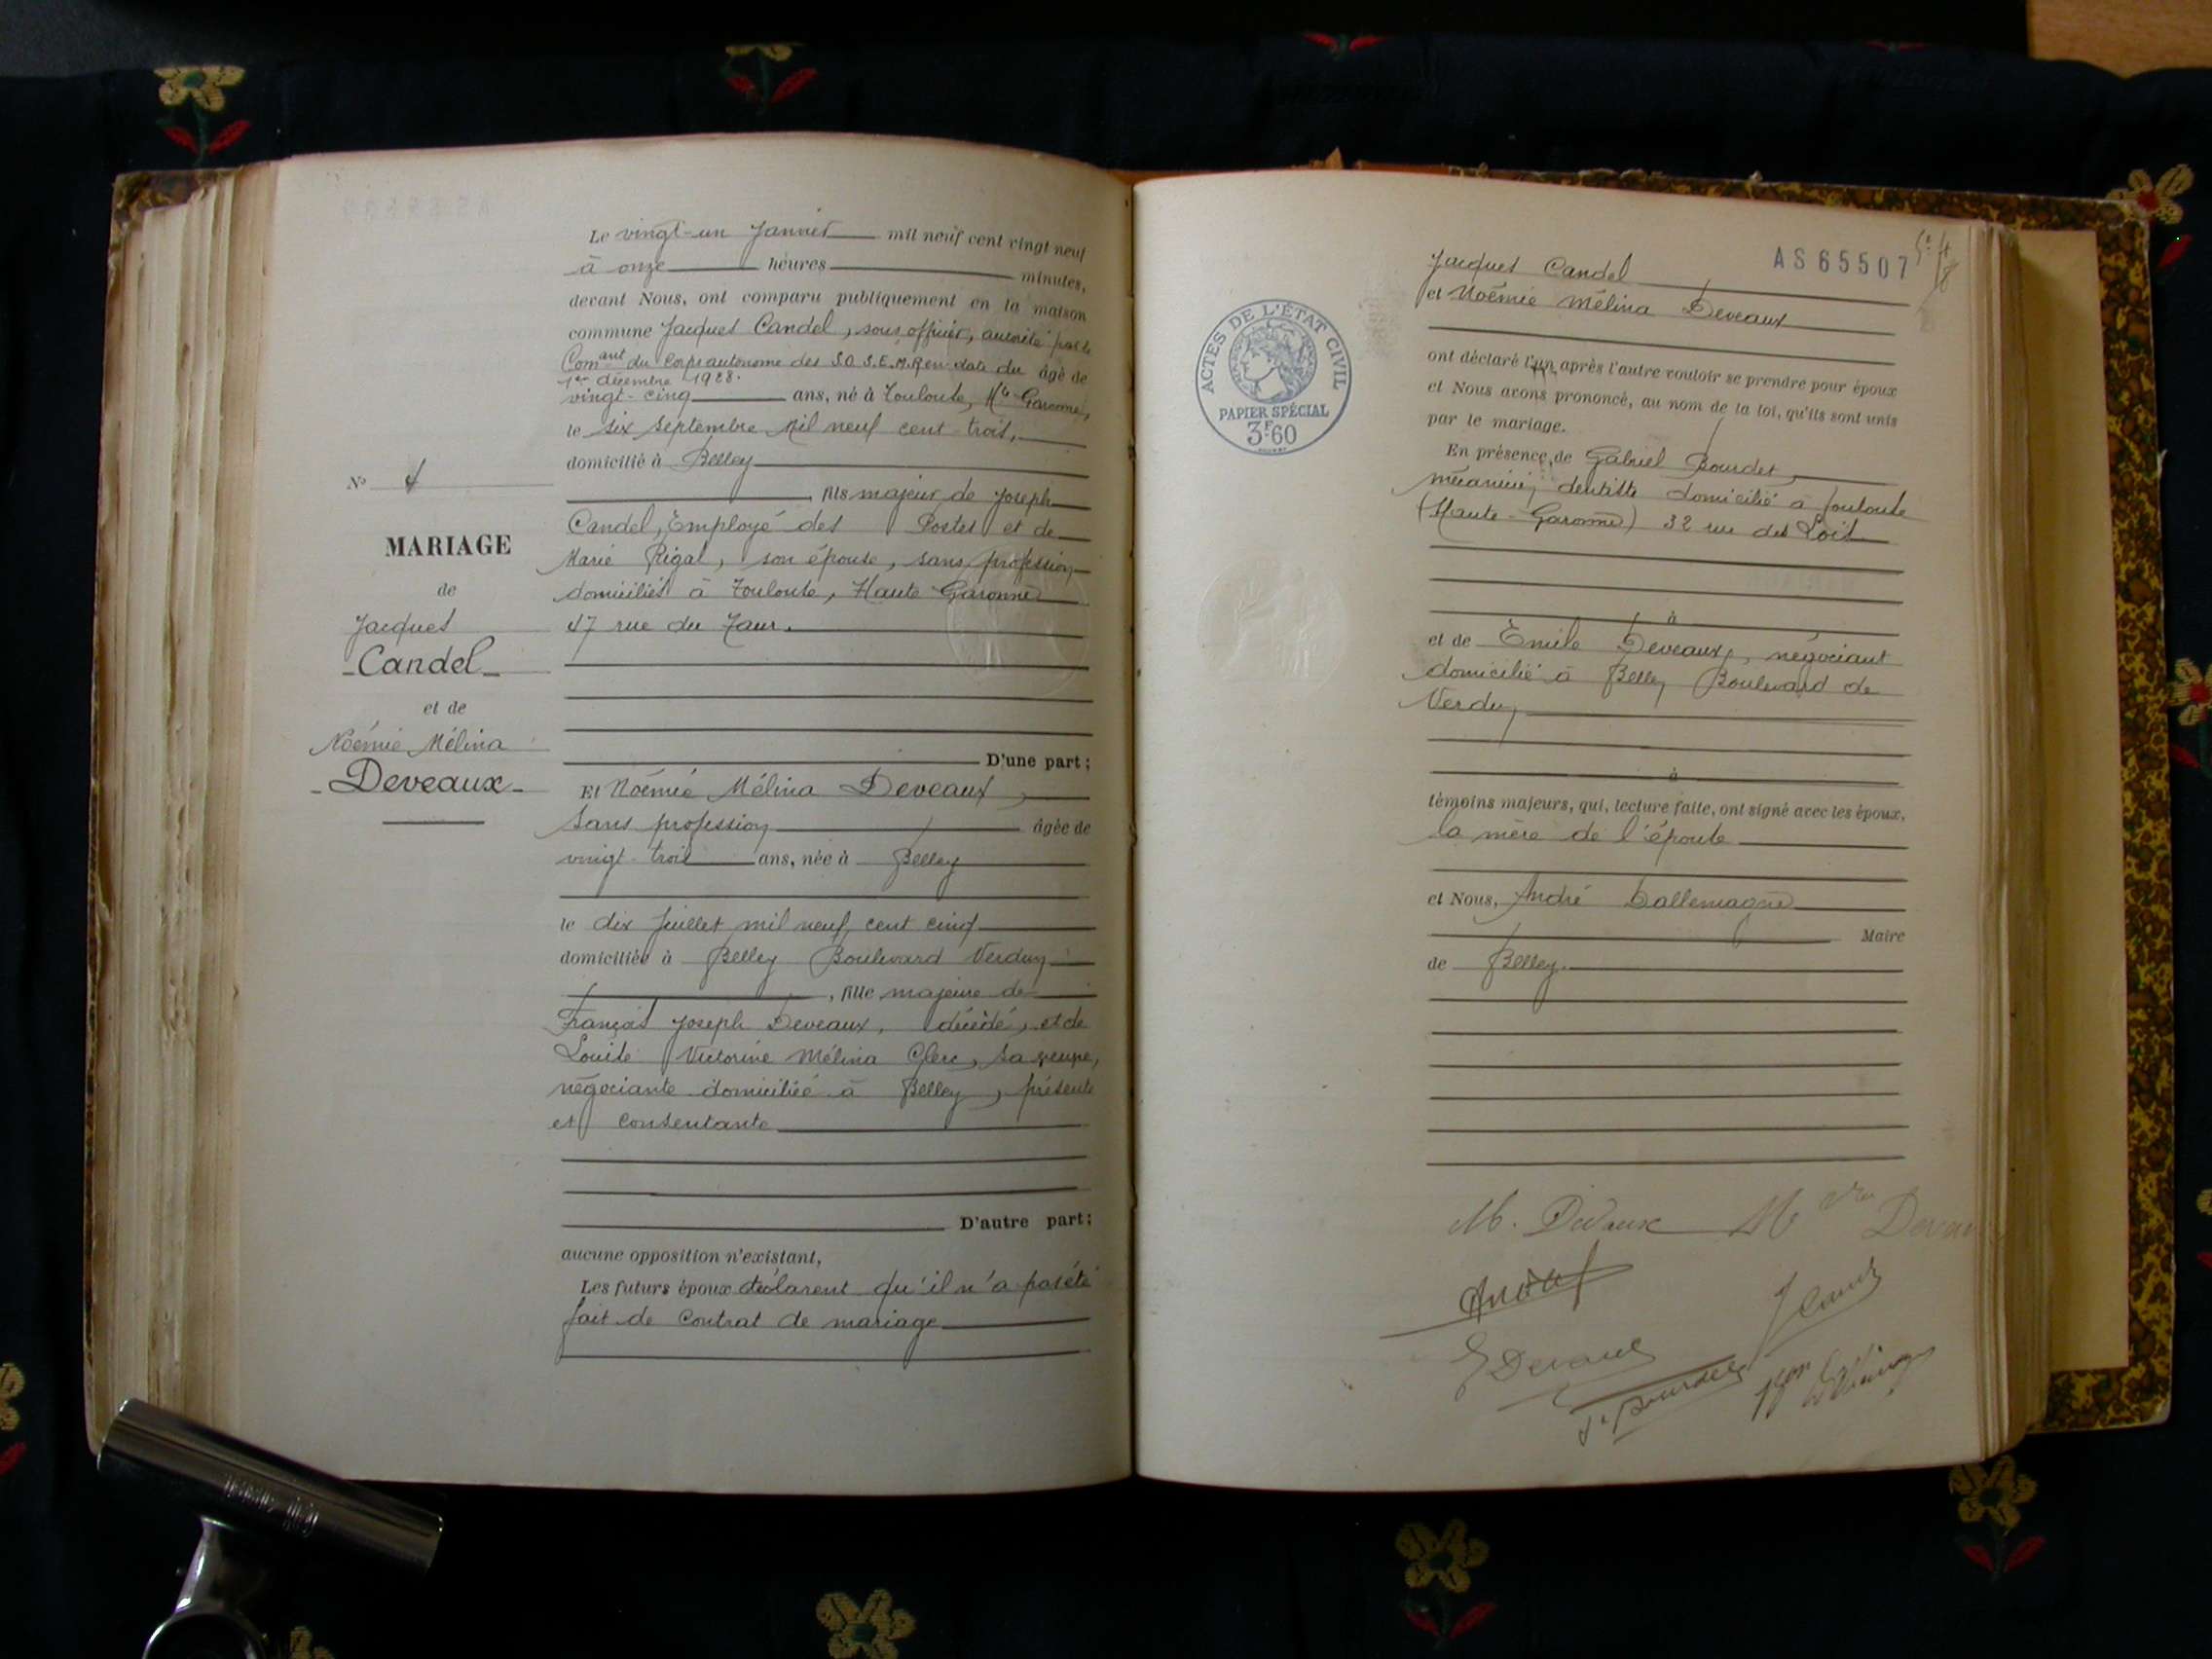 Le vingt-un Janvier mil neuf cent vingt neuf
à onze heures minutes,
devant Nous, ont comparu publiquement en la maison
commune Jacques Candel, sous officier, autorisé par le
Com ant du Corps autonome des S.O.S.E.M.R en date du âgé de
1er décembre 1928.
vingt-cinq ans, né à Toulouse, Hte Garonne,
le six Septembre Mil neuf cent trois,
domicilié à Belley
, fils majeur de Joseph
Candel, Employé des Postes et de
Marie Rigal, son épouse, sans profession
domiciliés à Toulouse, Haute Garonne
47 rue du Taur.
D'une part ;
N° 4
MARIAGE
de
Jacques
- Candel -
et de
Noémie Mélina
- Deveaux -
Et Noémie Mélina Deveaux,
Sans profession âgée de
vingt-trois ans, née à Belley
le dix Juillet mil neuf cent cinq
domiciliée à Belley Boulevard Verdun
, fille majeure de
François Joseph Deveaux, décédé, et de
Louise Victorine Mélina Clerc, sa veuve,
négociante domiciliée à Belley, présente
et consentante
D'autre part ;
aucune opposition n'existant,
Les futurs époux déclarent qu'il n'a pas été
fait de contrat de mariage
AS65507
Jacques Candel
et Noémie Mélina Deveaux
ACTES DE L'ÉTAT CIVIL
PAPIER SPÉCIAL
3F60
ont déclaré l'un après l'autre vouloir se prendre pour époux
et Nous avons prononcé, au nom de la loi, qu'ils sont unis
par le mariage.
En présence de Gabriel Bourdet,
mécanicien dentiste domicilié à Toulouse
(Haute-Garonne) 32 rue des Lois
à
et de Emile Deveaux, négociant
domicilié à Belley Boulevard de
Verdun
à
témoins majeurs, qui, lecture faite, ont signé avec les époux,
la mère de l'épouse
et Nous, André Dallemagne
Maire
de Belley.
M. Deveaux Mme Vve Deveaux
E Deveaux